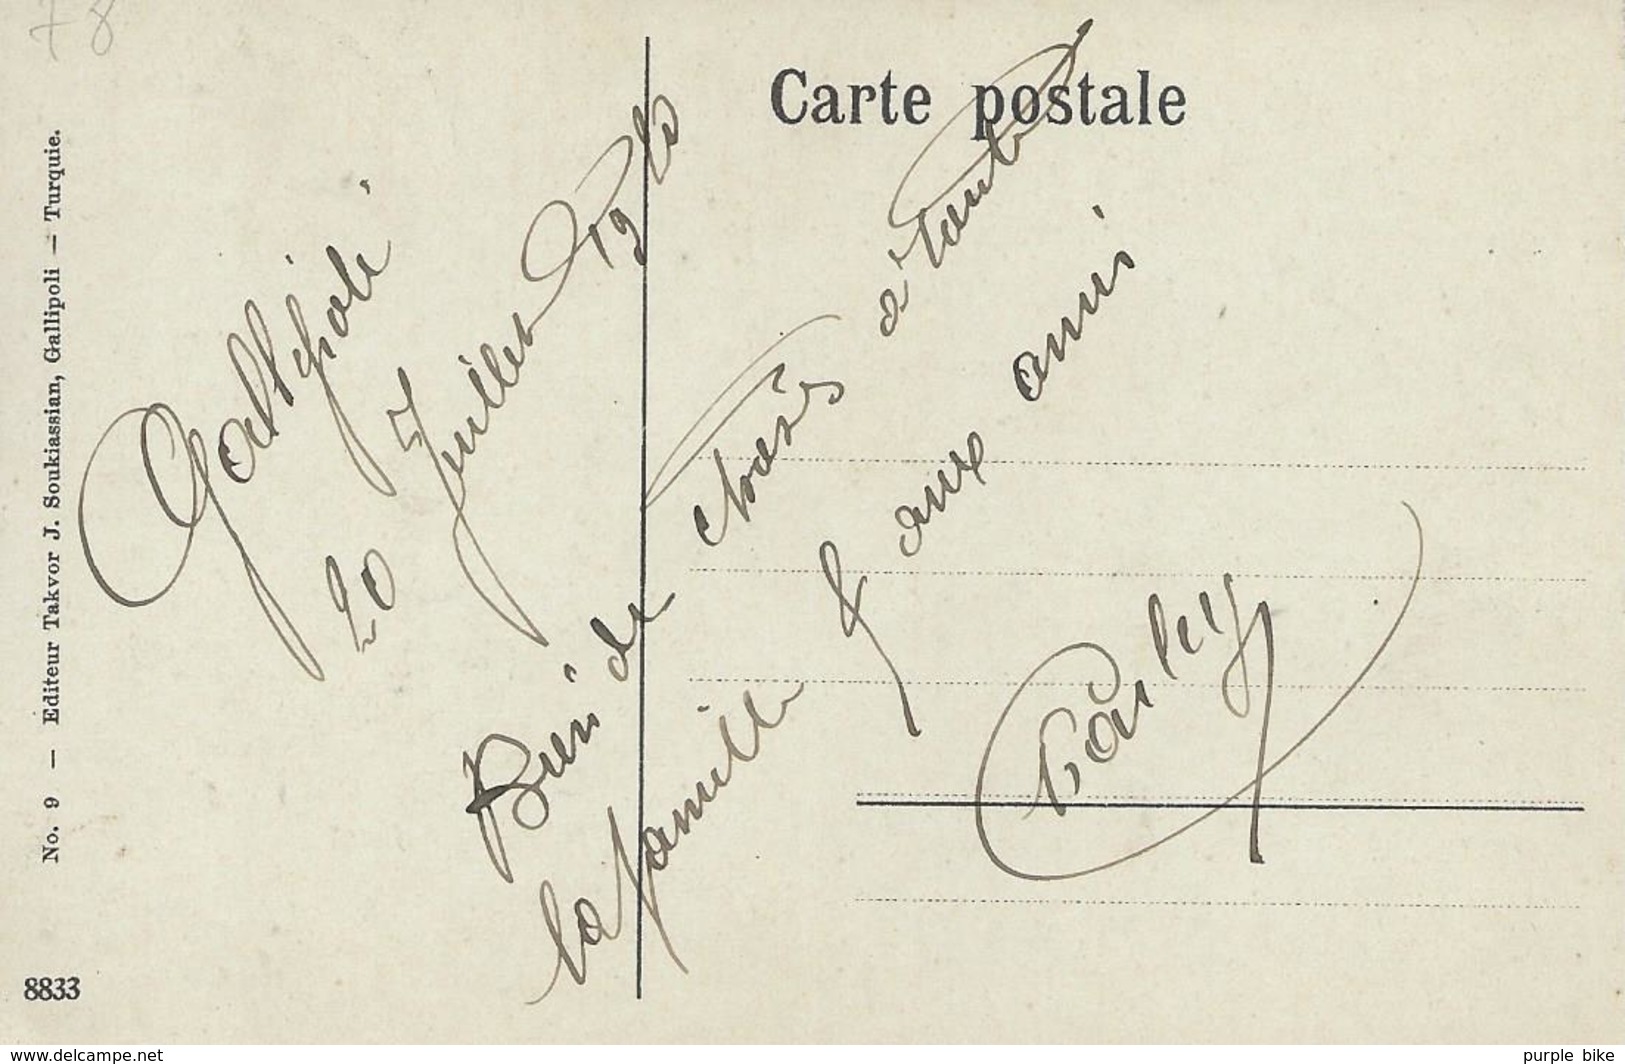 78
Carte postale
Gallipoli
20 Juillet 1920
Bien de choses à toute
la famille & aux amis
No. 9 — Editeur Takvor J. Soukiassian, Gallipoli — Turquie.
8833
www.delcampe.net
purple bike